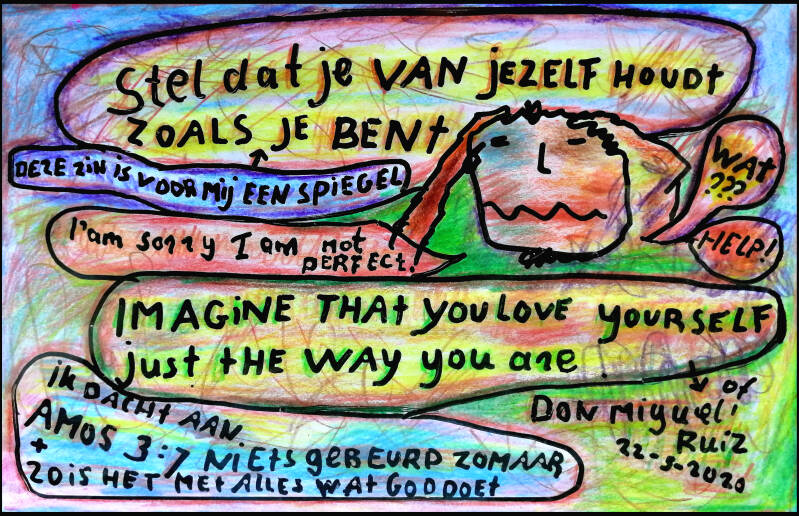 Stel dat je VAN jEZELF HOUDt
ZOALS JE BENt
DEZE ZiN is VOOR Mij EEN SPiEGEL
WAt
???
I'am sorry I am not
PERFECt!
HELP!
IMAGiNE THAt YOU LOVE YOURSELF
just tHE WAY you are
of
DON MiGUEL
RUiZ
22-5-2020
ik DACHt AAN
AMOS 3:7 NiEtS GEBEURD ZOMAAR
+
ZO iS HET MEt ALLES WAt GOD DOEt